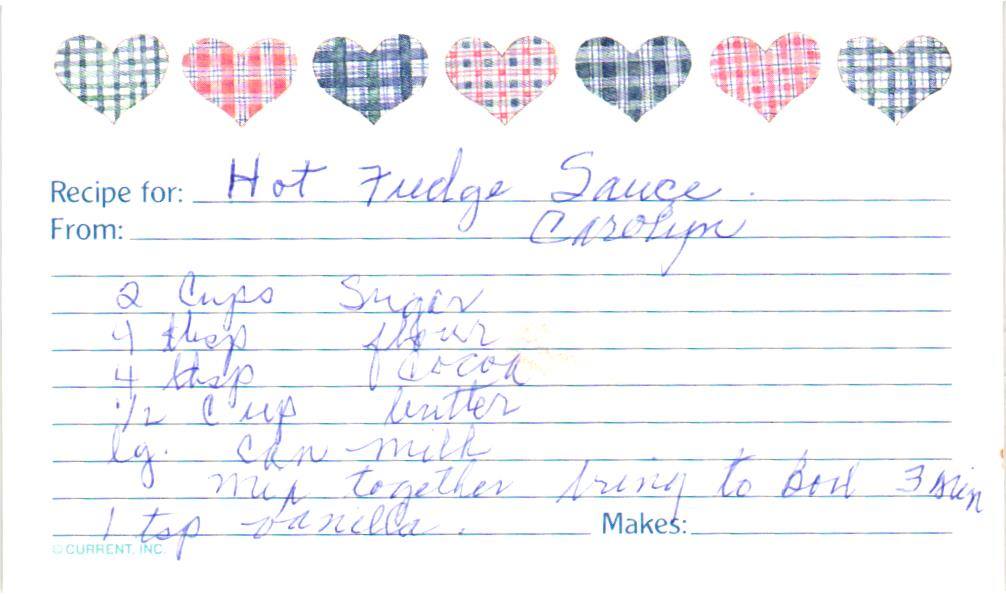 Recipe for: Hot Fudge Sauce.
From: Carolyn
2 Cups Sugar
4 tbsp flour
4 tbsp Cocoa
1/2 Cup butter
lg. can milk
mix together bring to Boil 3 min
1 tsp vanilla. Makes:
© CURRENT, INC.